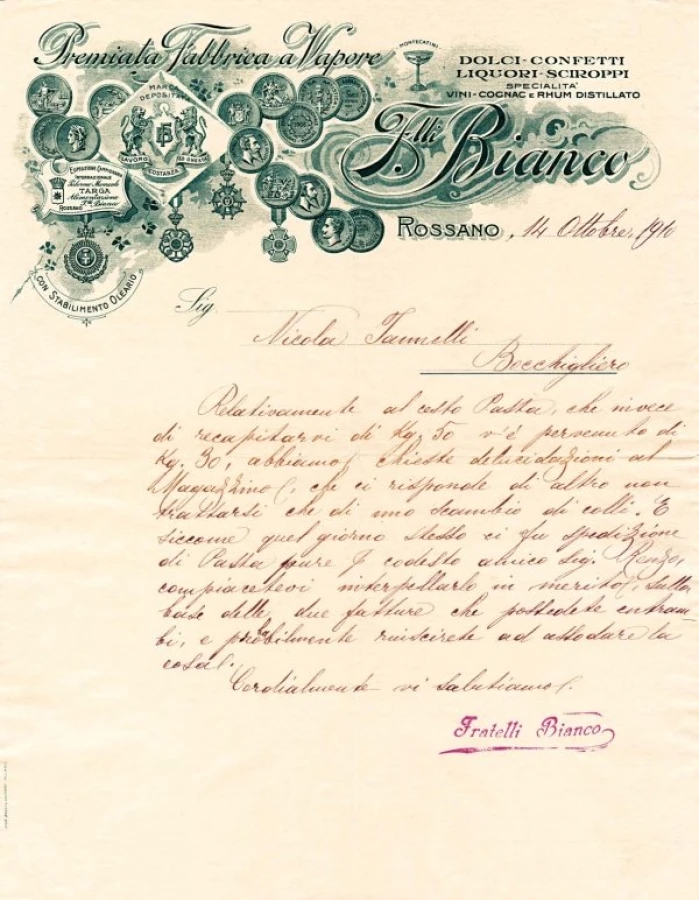 Premiata Fabbrica a Vapore
MONTECATINI
DOLCI-CONFETTI
LIQUORI-SCIROPPI
SPECIALITA'
VINI-COGNAC E RHUM DISTILLATO
MARCA
DEPOSITATA
F.lli Bianco
LAVORO
COSTANZA
ED ONESTÀ
ESPOSIZIONE CAMPIONARIA
INTERNAZIONALE
TARGA
Alimentazione
F.lli Bianco
ROSSANO
CON STABILIMENTO OLEARIO
ROSSANO, 14 Ottobre 1910
Sig.
Nicola Iannelli
Bocchigliero
Relativamente al cesto Pasta, che invece
di recapitarvi di Kg. 50 v'è pervenuto di
Kg. 30, abbiamo chieste delucidazioni al
Magazzino, che ci risponde di altro non
trattarsi che di uno scambio di colli. E
siccome quel giorno stesso ci fu spedizione
di Pasta pure codesto amico Sig. Renzo,
compiacetevi interpellarlo in merito, sulla
base delle due fatture che possedete entram-
bi, e probilmente riuscirete ad assodare la
cosa.
Cordialmente vi salutiamo.
Fratelli Bianco